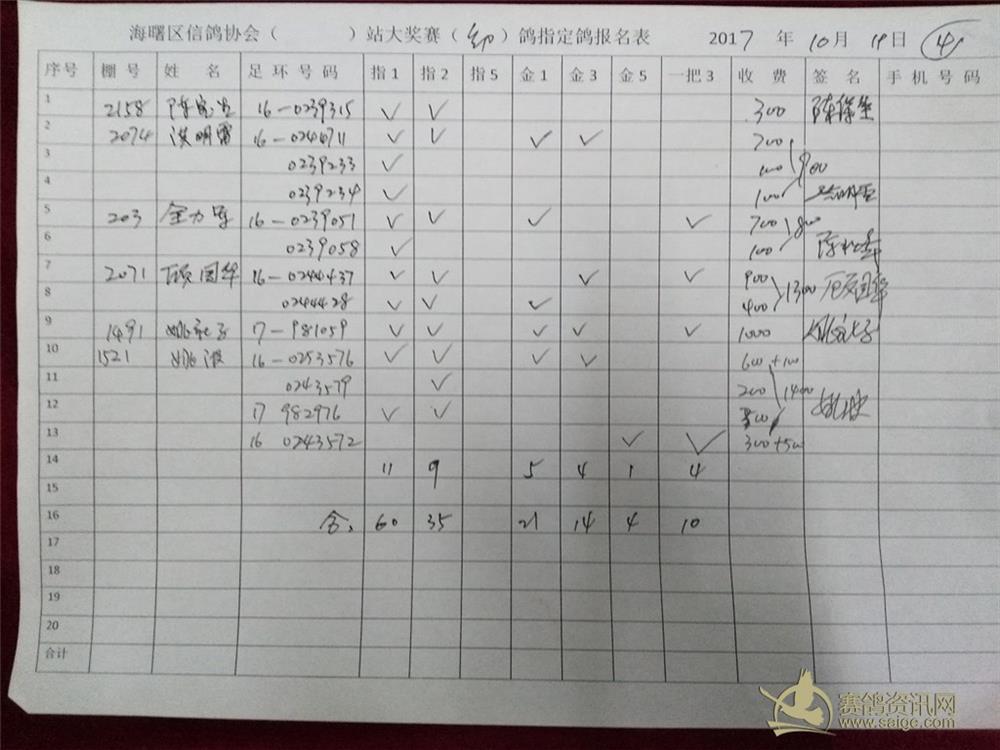 海曙区信鸽协会（ ）站大奖赛（ ）鸽指定鸽报名表 2017 年 10月 19日 4
序号 棚号 姓名 足环号码 指1 指2 指5 金1 金3 金5 一把3 收费 签名 手机号码
1 2158 16-0239315 ✓ ✓ 300
2 2074 洪明雷 16-0244711 ✓ ✓ ✓ ✓ 700
3 0239233 ✓ 100 900
4 0239234 ✓ 100
5 203 全力军 16-0239051 ✓ ✓ ✓ ✓ 700 800
6 0239058 ✓ 100
7 2071 顾国华 16-0244437 ✓ ✓ ✓ ✓ 900 1300 顾国华
8 0244428 ✓ ✓ ✓ 400
9 1491 17-981059 ✓ ✓ ✓ ✓ ✓ 1000
10 1521 姚波 16-0253576 ✓ ✓ ✓ ✓ 600+100
11 0243579 ✓ 200 1400
12 17 982976 ✓ ✓ 姚波
13 16 0243572 ✓ ✓ 300+500
14 11 9 5 4 1 4
15
16 合: 60 35 21 14 4 10
17
18
19
20
合计
赛鸽资讯网
www.saige.com